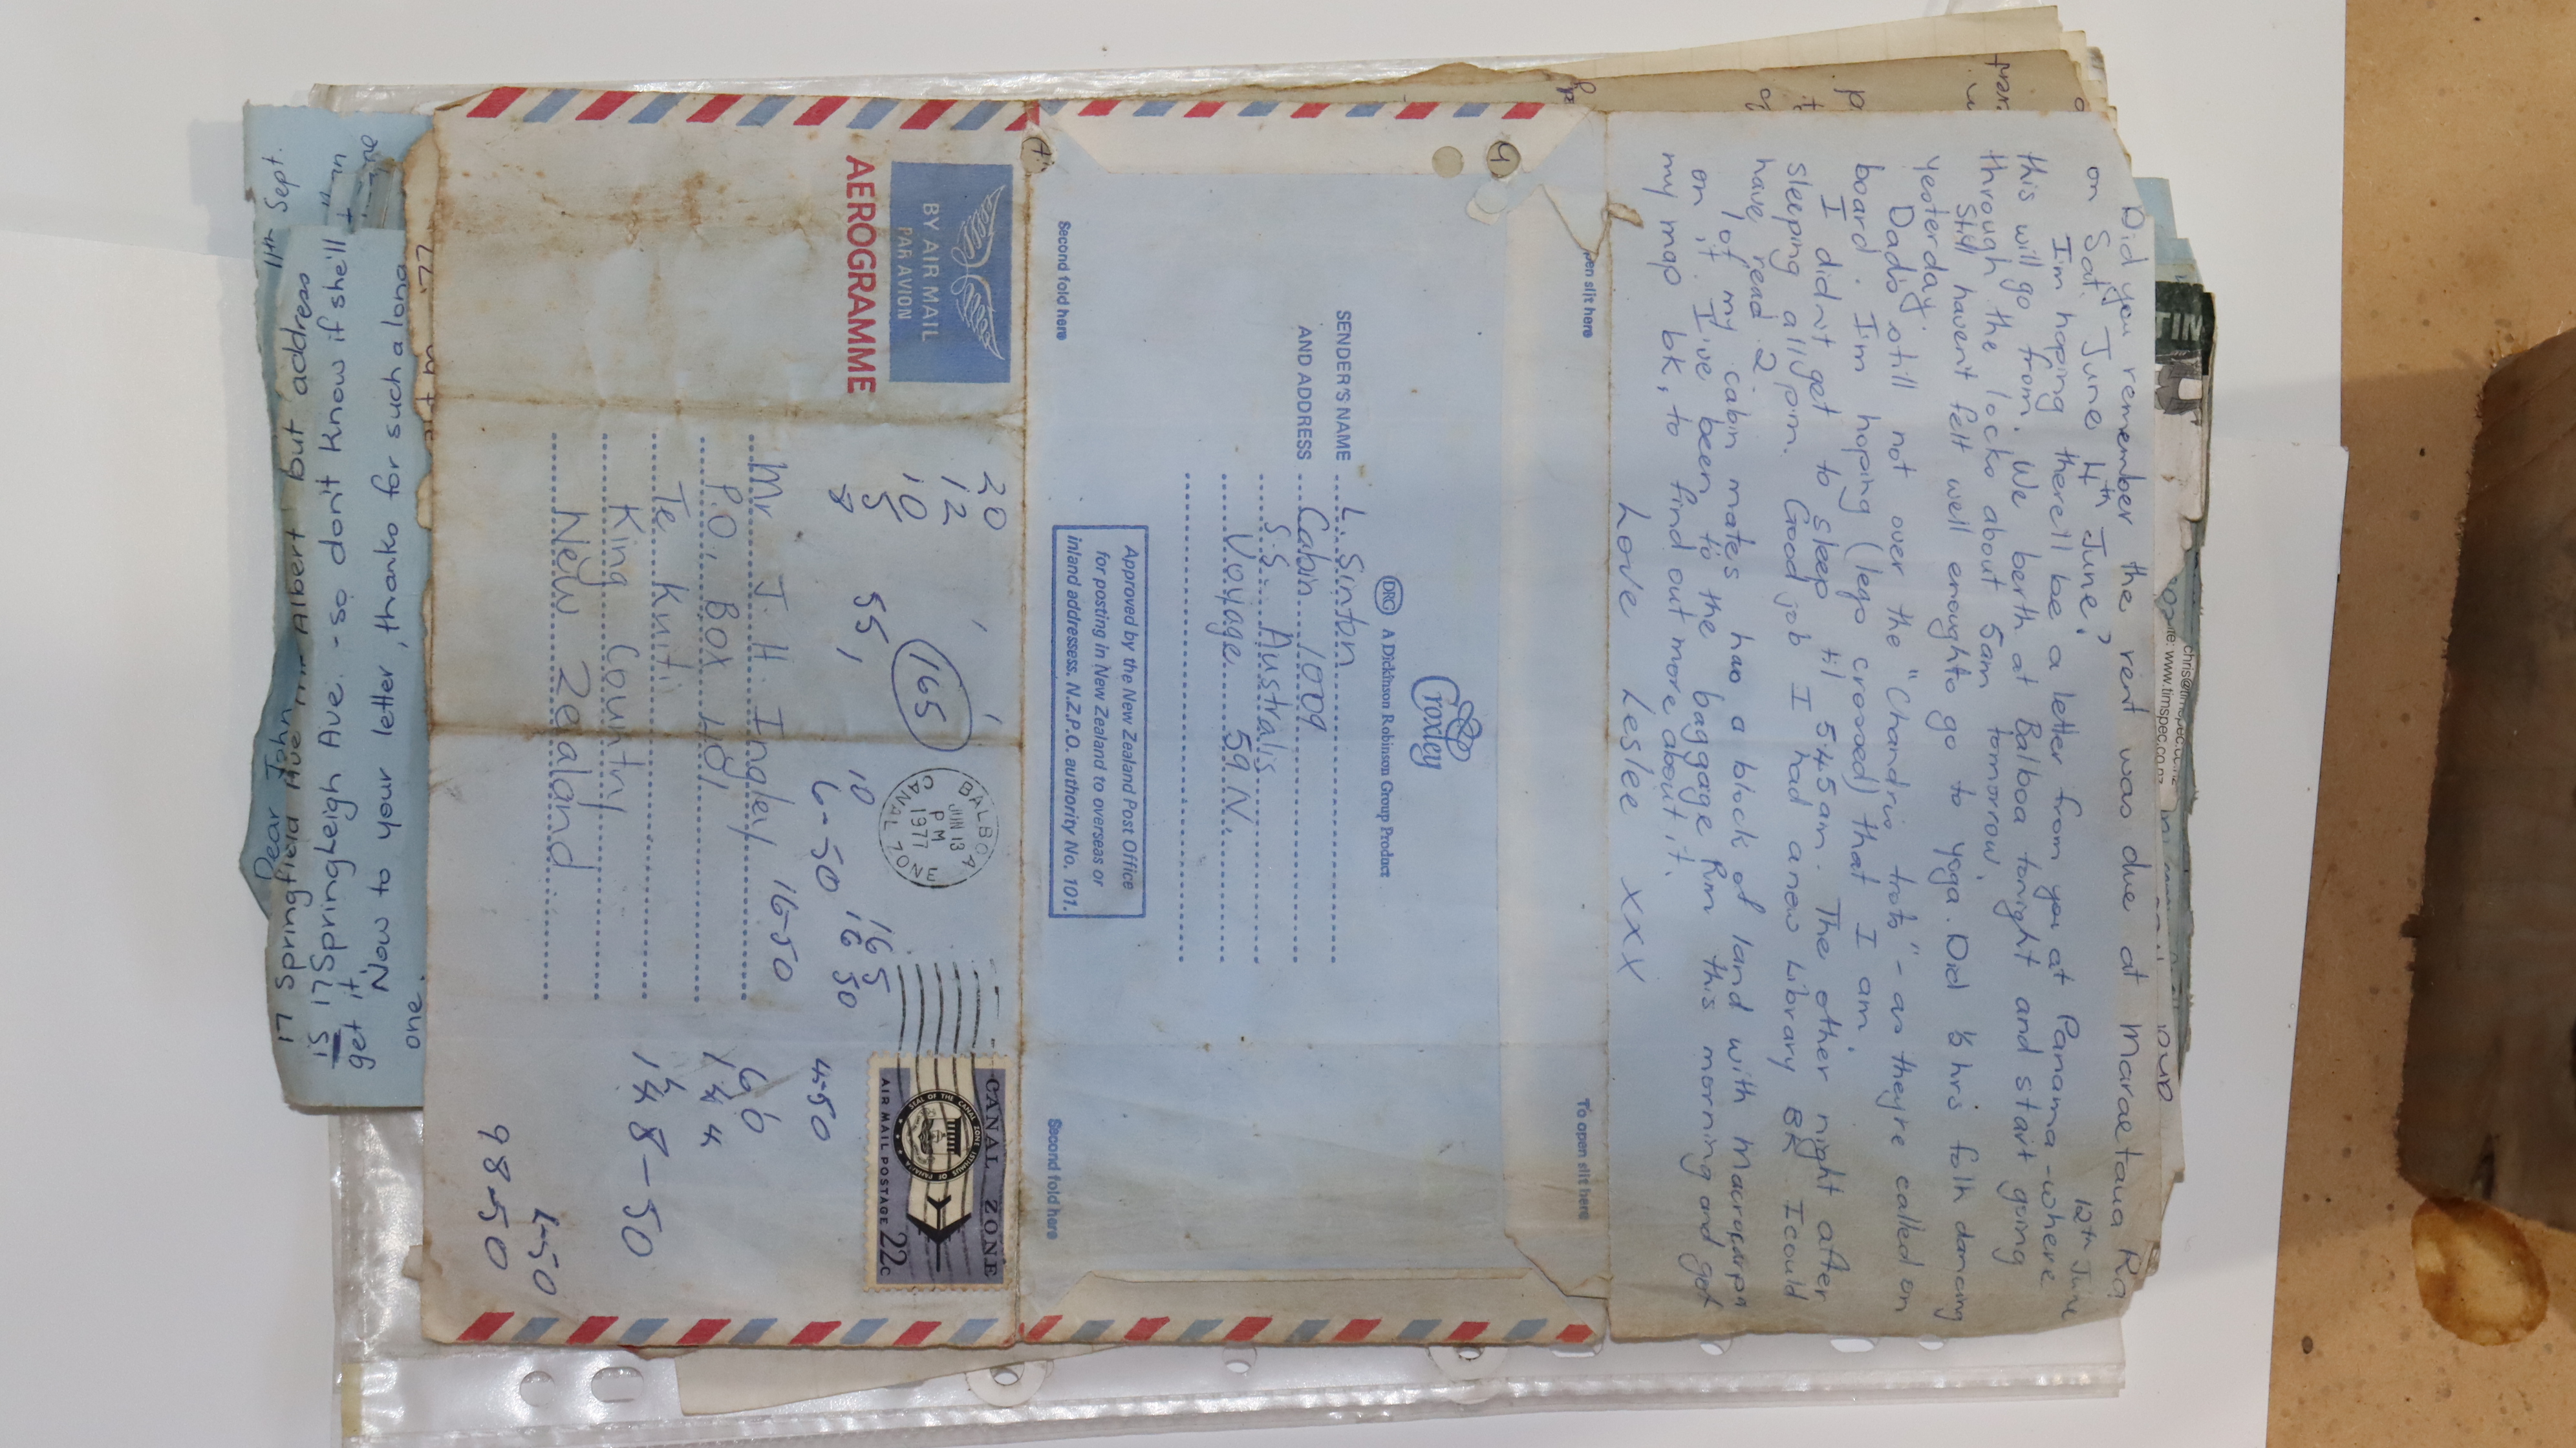 Did you remember the rent was due at Maraetaua Rd
on Sat. June 4th June?
12th June
I'm hoping there'll be a letter from you at Panama - where
this will go from. We berth at Balboa tonight and start going
through the locks about 5am tomorrow.
Still havent felt well enough to go to yoga. Did ½ hrs folk dancing
yesterday.
Dads still not over the "Chandris trots" - as theyre called on
board. I'm hoping (legs crossed) that I am.
I didn't get to sleep til 5.45am. The other night after
sleeping all pm. Good job I had a new library BK I could
have read 2.
1 of my cabin mates has a block of land with macrocarpa
on it. I've been to the baggage Rm this morning and got
my map bk, to find out more about it.
Love Leslee xxx
To open slit here
pen slit here
Croxley
DRG A Dickinson Robinson Group Product
SENDER'S NAME L. Sinton
AND ADDRESS Cabin 1009
S.S. Australis
Voyage 59N.
Approved by the New Zealand Post Office
for posting in New Zealand to overseas or
inland addressess. N.Z.P.O. authority No. 101.
Second fold here
Second fold here
BY AIR MAIL
PAR AVION
AEROGRAMME
CANAL ZONE
SEAL OF THE CANAL ZONE ISTHMUS OF PANAMA
AIR MAIL POSTAGE 22c
BALBOA
JUN 13
PM
1977
CANAL ZONE
20
12
10
5
8
55
165
10
6-50
165
16 50
4-50
Mr J. H. Ingley
16-50
P.O. Box 401
Te Kuiti
King Country
New Zealand
66
144
148-50
1-50
98-50
11th Sept.
Dear John
17 Springfield Ave Albert but address
is 17 Springleigh Ave. - so don't know if she'll
get it.
Now to your letter, thanks for such a long
one.
TIM
chris@
www.timspec.co.nz